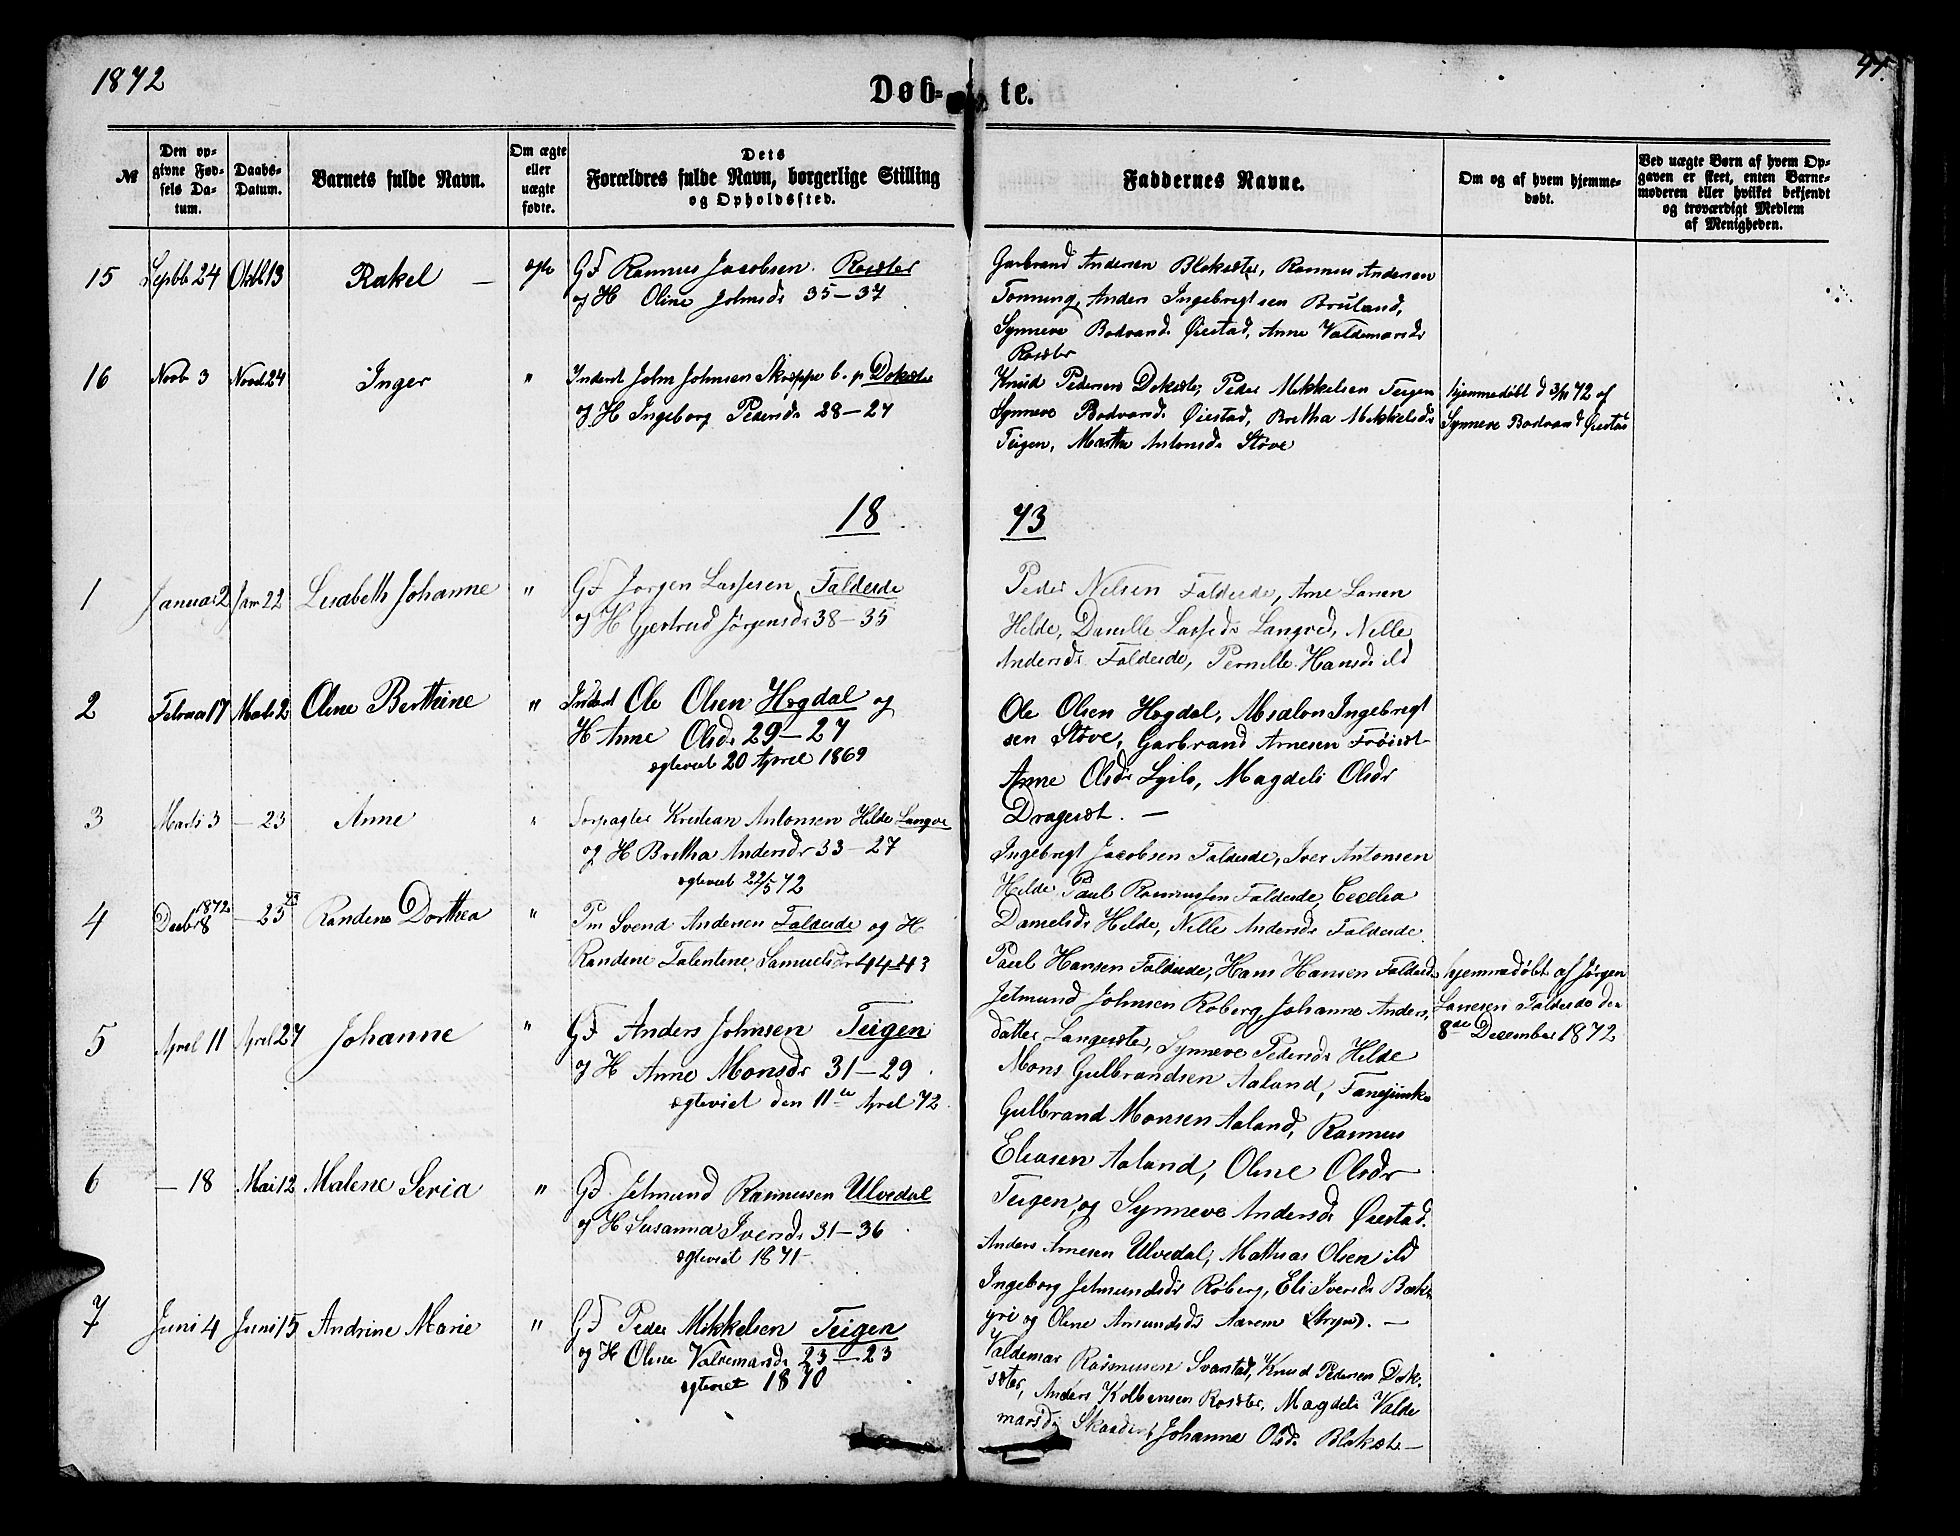 1872
Døb-
te.
№
Den op-
givne Fød-
sels Da-
tum.
Daabs-
Datum.
Barnets fulde Navn.
Om ægte
eller
uægte
fødte.
Dets
Forældres fulde Navn, borgerlige Stilling
og Opholdssted.
Faddernes Navne.
Om og af hvem hjemme-
døbt.
Ved uægte Børn af hvem Op-
gaven er skeet, enten Barne-
moderen eller hvilket bekjendt
og troværdigt Medlem
af Menigheden.
15 Septb 24 Oktb 13 Rakel — ægte
GF Rasmus Jacobsen Rosæter
og H Oline Johnsdr 35–37
Garbrand Andersen Blaksæter, Rasmus Andersen
Tonning, Anders Ingebrigtsen Bruland,
Synneve Bodvard. Øiestad, Anne Valdemarsdr
Rosæter
16 Novb 3 Novb 24 Inger "
Inderst John Johnsen Skreppe b. p Doksæter
og H Ingeborg Pedersdr 28–27
Knud Pedersen Doksæter, Peder Mikkelsen Teigen
Synneve Bodvard. Øiestad, Bretha Mikkelsdr
Teigen, Marthe Antonsdr Støve
hjemmedøbt d 3/11 72 af
Synneve Bodvard Øiestad
18 73
1 Januar 2 Jan 22 Lisabeth Johanne "
GF Jørgen Lassesen Faldeide
og H Gjertrud Jørgensdr 38–35
Peder Nilsen Faldeide, Arne Larsen
Hilde, Danielle Lassedr Langved, Nille
Andersdr Faldeide, Pernille Hansdr ild
2 Februar 17 Marts 2 Oline Berthine "
Inderst Ole Olsen Hogdal og
H Anne Olsdr 29–27
egteviet 20 April 1869
Ole Olsen Hogdal, Absalon Ingebrigt
sen Støve, Garbrand Arnesen Frøiset
Anne Olsdr Lyslo, Magdeli Olsdr
Drageset. —
3 Marts 3 — 23 Anne "
Forpagter Kristian Antonsen Hilde Langve
og H Bretha Andersdr 33–27
egteviet 22/5 72
Ingebrigt Jacobsen Faldeide, Iver Antonsen
Hilde Paul Rasmussen Faldeide, Cecelia
Danielsdr Hilde, Nille Andersdr Faldeide
4 1872 Decbr 8 — 25 Randine Dorthea "
Pm Svend Andersen Faldeide og H
Randine Talentine Samuelsdr 44–43
Paul Hansen Faldeide, Hans Hansen Faldeide
Jetmund Johnsen Roberg, Johanne Anders-
datter Langesæter, Synneve Pedersdr Hilde
hjemmedøbt af Jørgen
Lassesen Faldeide den
8de December 1872
5 April 11 April 27 Johanne "
GF Anders Johnsen Teigen
og H Anne Monsdr 31–29
egteviet den 11te April 72
Mons Gulbrandsen Aaland, Fanejunker
Gulbrand Monsen Aaland, Rasmus
Eliasen Aaland, Oline Olsdr
Teigen, og Synneve Andersdr Øiestad.
6 — 18 Mai 12 Malene Seria "
GF. Jetmund Rasmusen Ulvedal
og H Susanna Iversdr 31–36
egteviet 1871
Anders Arnesen Ulvedal, Mathias Olsen ild
Ingeborg Jetmundsdr Roberg, Eli Iversdr Bæk
yri og Oline Amundsdr Aarem (Stryn). —
7 Juni 4 Juni 15 Andrine Marie "
GF Peder Mikkelsen Teigen
og H Oline Valdemarsdr 23–23
egteviet 1870
Valdemar Rasmusen Svarstad, Knud Pedersen Dok-
sæter, Anders Kolbensen Rosæter, Magdeli Valde
marsdr Skaaden, Johanne Olsdr Blaksæter —